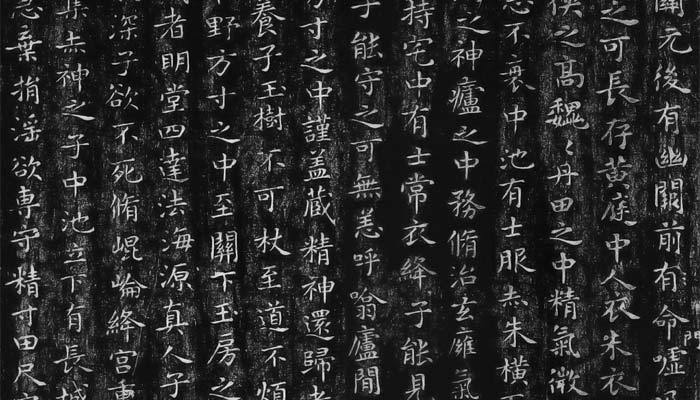 關元後有幽闕前有命門嘘
之可長存黃庭中人衣朱衣
俠之高巍〻丹田之中精氣微
志不衰中池有士服赤朱橫下
之神廬之中務脩治玄㢕氣
持宅中有士常衣絳子能見
子能守之可無恙呼噏廬間
方寸之中謹蓋藏精神還歸老
養子玉樹不可杖至道不煩
野方寸之中至關下玉房之
者眀堂四達法海源真人子
深子欲不死脩崐崘絳宮重
集赤神之子中池立下有長城
急棄捐淫欲専守精寸田尺宅